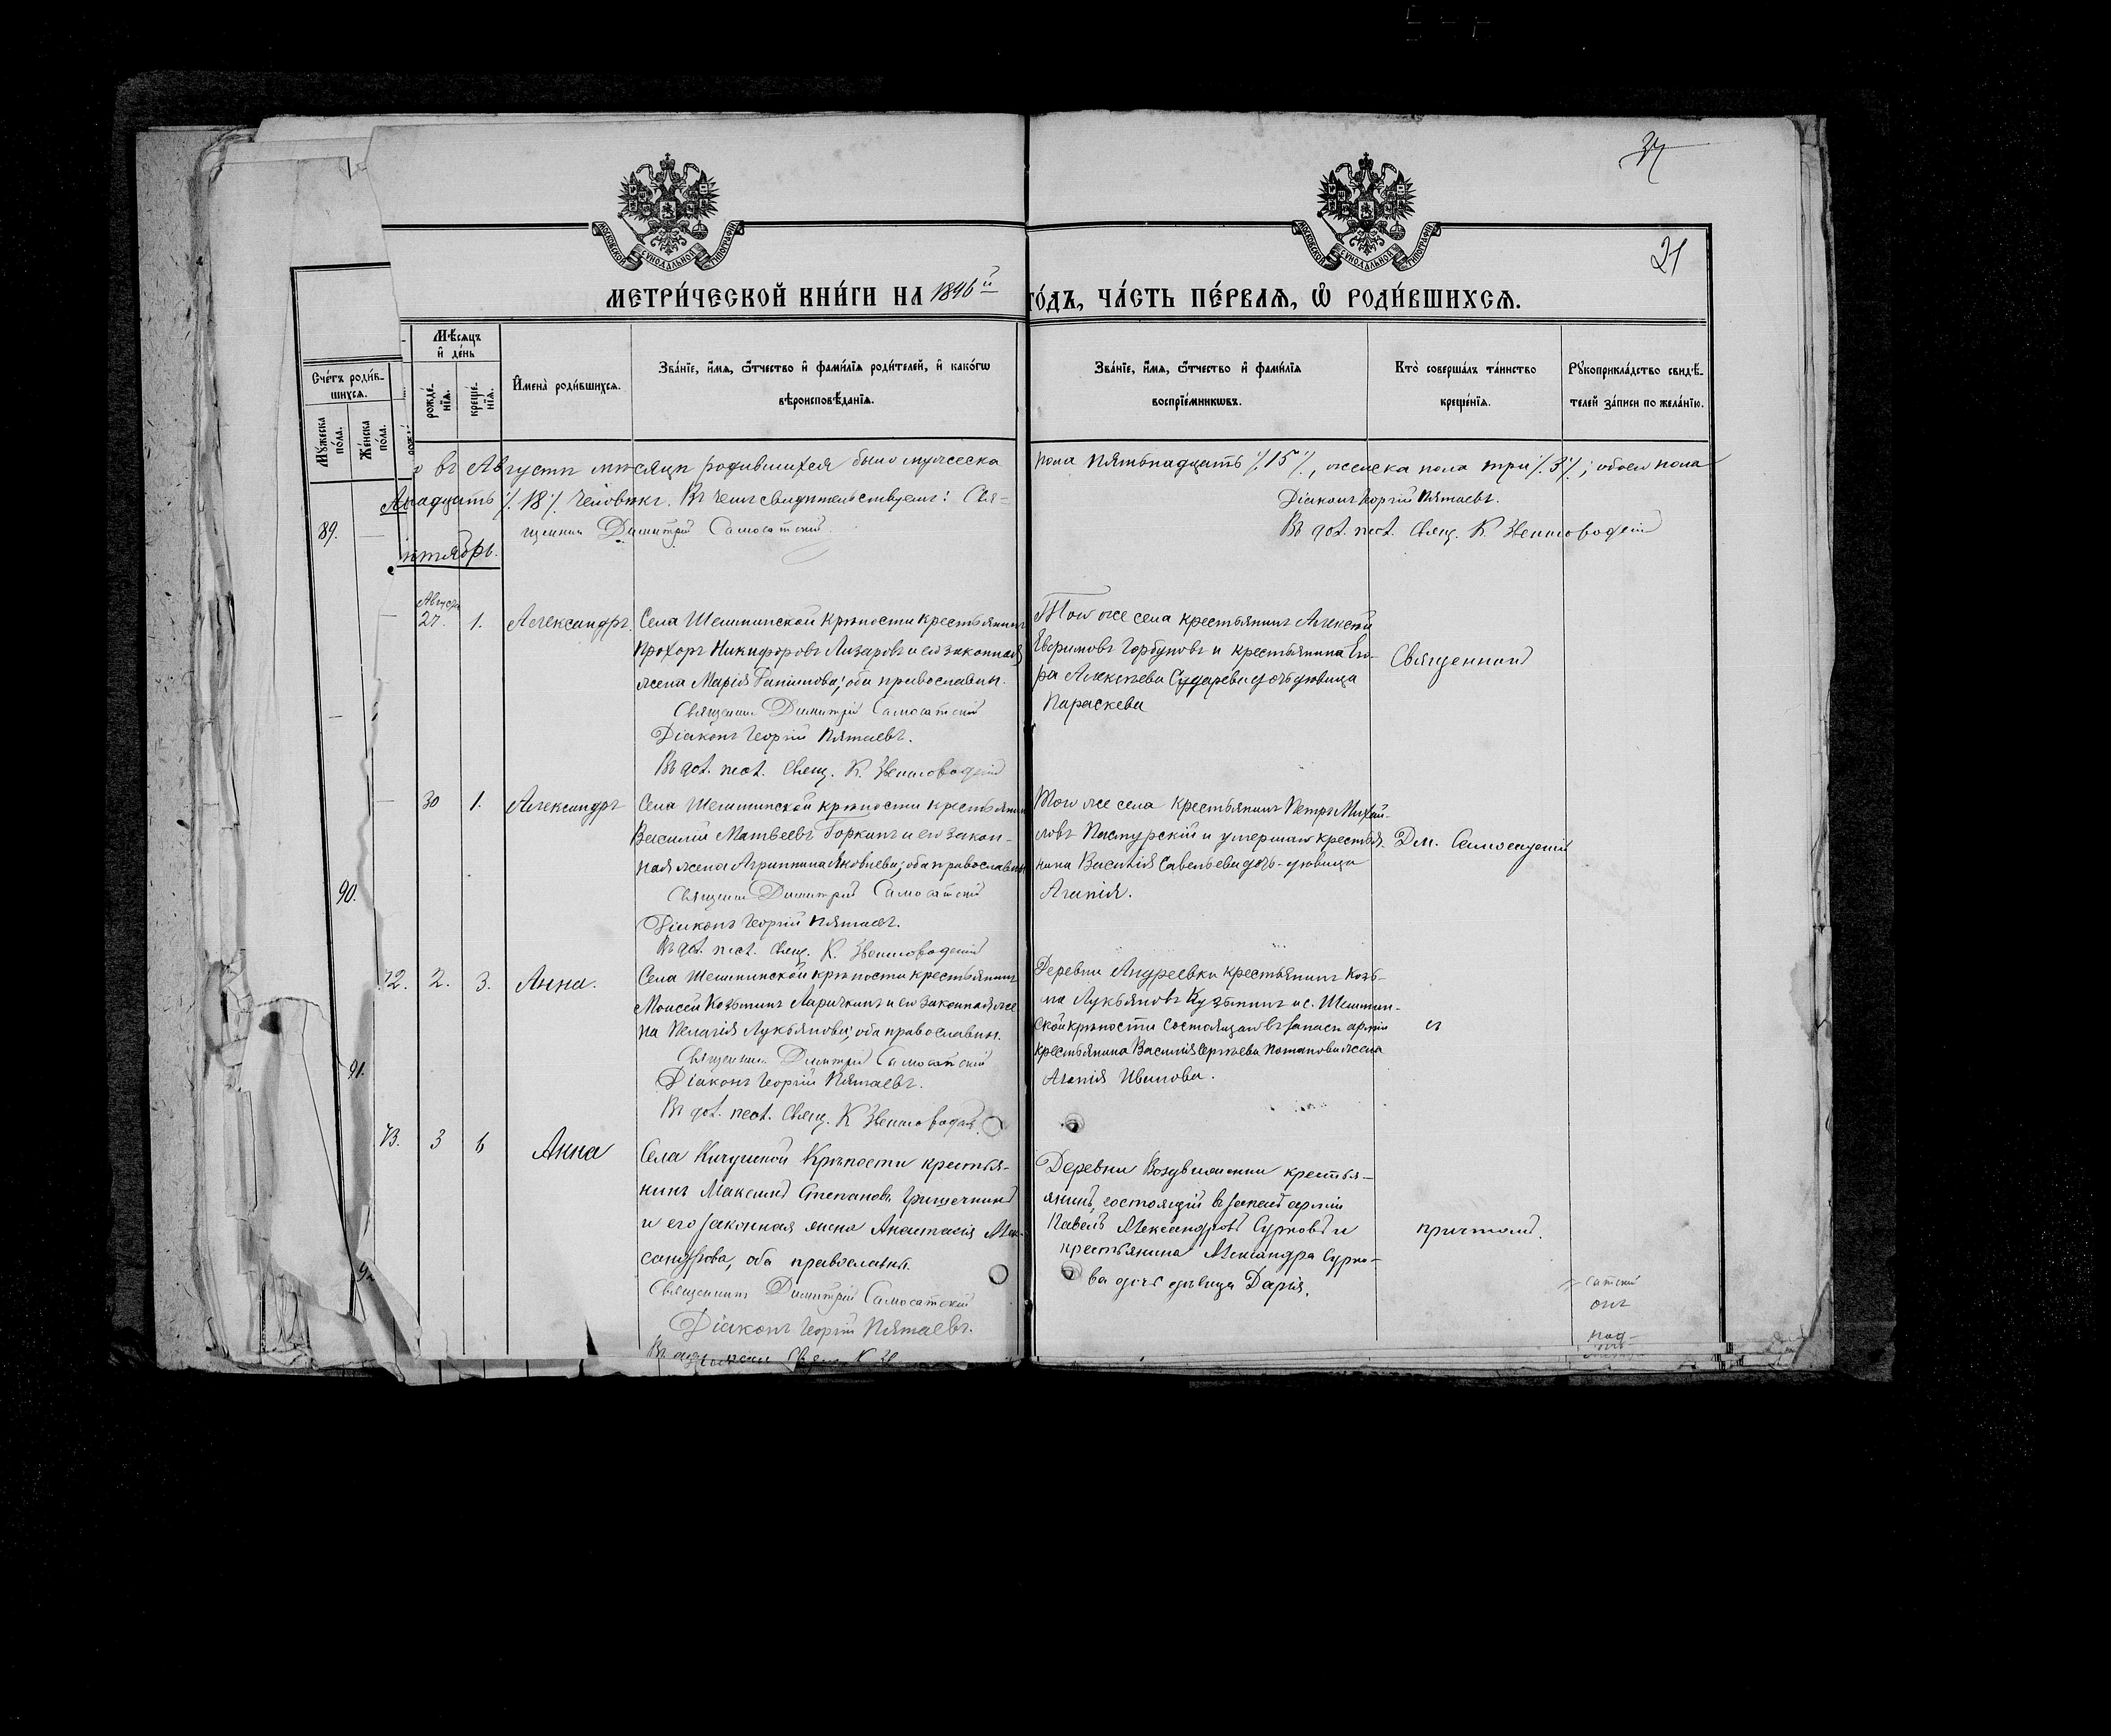 37
21
МОСКОВСКОЙ СѴНОДАЛЬНОЙ ТИПОГРАФІИ
МОСКОВСКОЙ СѴНОДАЛЬНОЙ ТИПОГРАФІИ
МЕТРИ́ЧЕСКОЙ КНИ́ГИ НА 1896й ГО́ДЪ, ЧА́СТЬ ПЕ́РВАЯ, Ѡ РОДИ́ВШИХСЯ.
Счетъ роди́в-
шихся.
Мужеска по́ла.
Же́нска по́ла.
Мѣсяцъ
и́ де́нь
рожде́-
нїя.
креще́-
нїя.
И҆мена̀ роди́вшихся.
Зва́нїе, и҆́мя, ѻ҆́тчество и҆ фами́лїя роди́телей, и҆ како́гѡ
вѣроисповѣ́данїя.
Зва́нїе, и҆́мя, ѻ҆́тчество и҆ фами́лїя
воспрїе́мникѡвъ.
Кто̀ соверша́лъ та́инство
креще́нїя.
Рꙋкоприкла́дство свидѣ́-
телей за́писи по жела́нїю.
въ Августѣ мѣсяцѣ родившихся было мужеска
пола пятьнадцать /15/, женска пола три /3/; обоего пола
/18/ человѣкъ. Въ чемъ свидѣтельствуемъ: Свя-
щенникъ Димитрій Самосатскій.
Діаконъ Георгій Пятаевъ.
89.
К. Звениговодскій
нтябрь.
Августа
27. 1. Александръ.
Села Шешминской Крѣпости крестьянинъ
Прохоръ Никифоровъ Лизаровъ и его законная
жена Марія; оба православны.
Священник Димитрій Самосатскій
Діаконъ Георгій Пятаевъ.
Того же села крестьянинъ Алексѣй
Ефремовъ Горбуновъ и крестьянина Его-
ра Алексѣева дочь дѣвица
Параскева
Священникъ
30 1. Александръ
Села Шешминской крѣпости крестьянинъ
Василій Матвеевъ Горкинъ и его закон-
ная жена Агриппина Яковлева; оба православны
Священник Димитрій Самосатскій
Діаконъ Георгій Пятаевъ.
Того же села крестьянинъ Петръ Михай-
ловъ Пастурскій и умершаго крестья-
нина Василія Савельева дочь-дѣвица
Агапія.
Дм. Самосатскій
90.
2. 3. Анна.
Села Шешминской крѣпости крестьянинъ
Моисей Козьминъ Ларичкинъ и его законная же-
на Пелагія Лукьянова; оба православны.
Священник Димитрій Самосатскій
Діаконъ Георгій Пятаевъ.
Деревни Андреевки крестьянинъ Козь-
ма Лукьяновъ Кузьминъ и с. Шешмин-
ской крѣпости состоящаго въ запасѣ арміи
крестьянина Василія Сергѣева Потапова жена
Агапія Иванова.
съ
91.
3 6 Анна
Села Кичуйской Крѣпости крестья-
нинъ Максимъ Степановъ Гришечкинъ
и его законная жена Анастасія Алек-
сандрова, оба православны.
Священникъ Димитрій Самосатскій
Діаконъ Георгій Пятаевъ.
Деревни Воздвиженки крестья-
янинъ, состоящій въ запасѣ арміи
Павелъ Александровъ Сурковъ и
крестьянина Александра Сурко-
ва дочь дѣвица Дарія.
причтомъ.
сатскій